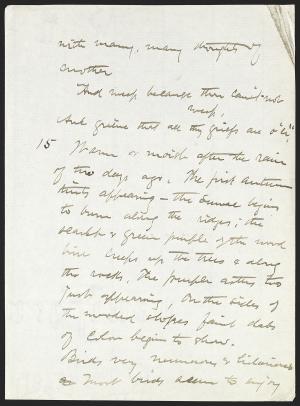 with many, many thoughts of
another
And weep because thou canst not
weep,
And grieve that all thy griefs are o'er."
15 Warm & moist after the rain
of two days ago. The first autumn
tints appearing — the sumac begins
to burn along the ridges; the
scarlet & green purple of the wood
bine creeps up the trees & along
the rocks. The purple asters too
just appearing, On the sides of
the wooded slopes faint dabs
of color begin to show.
Birds very numerous & hilarious
as most birds seem to enjoy